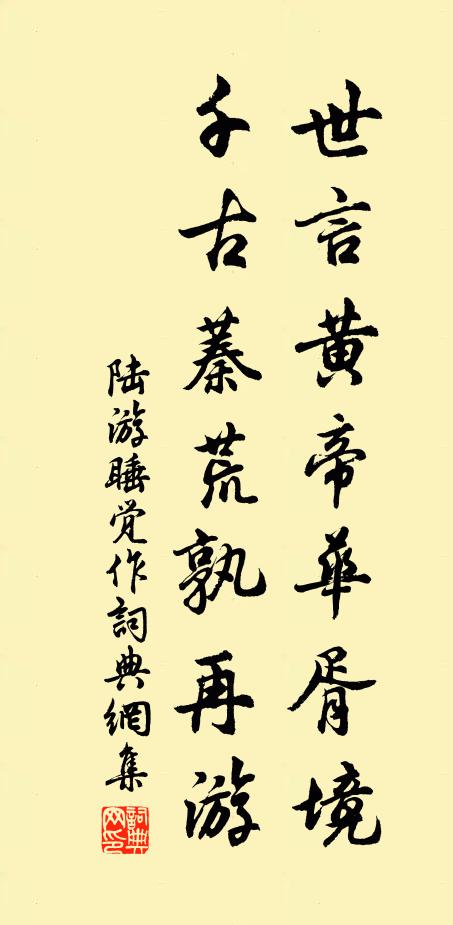 世言黄帝華胥境
千古蓁荒孰再游
陆游睡觉作詞典網集
詞典网印